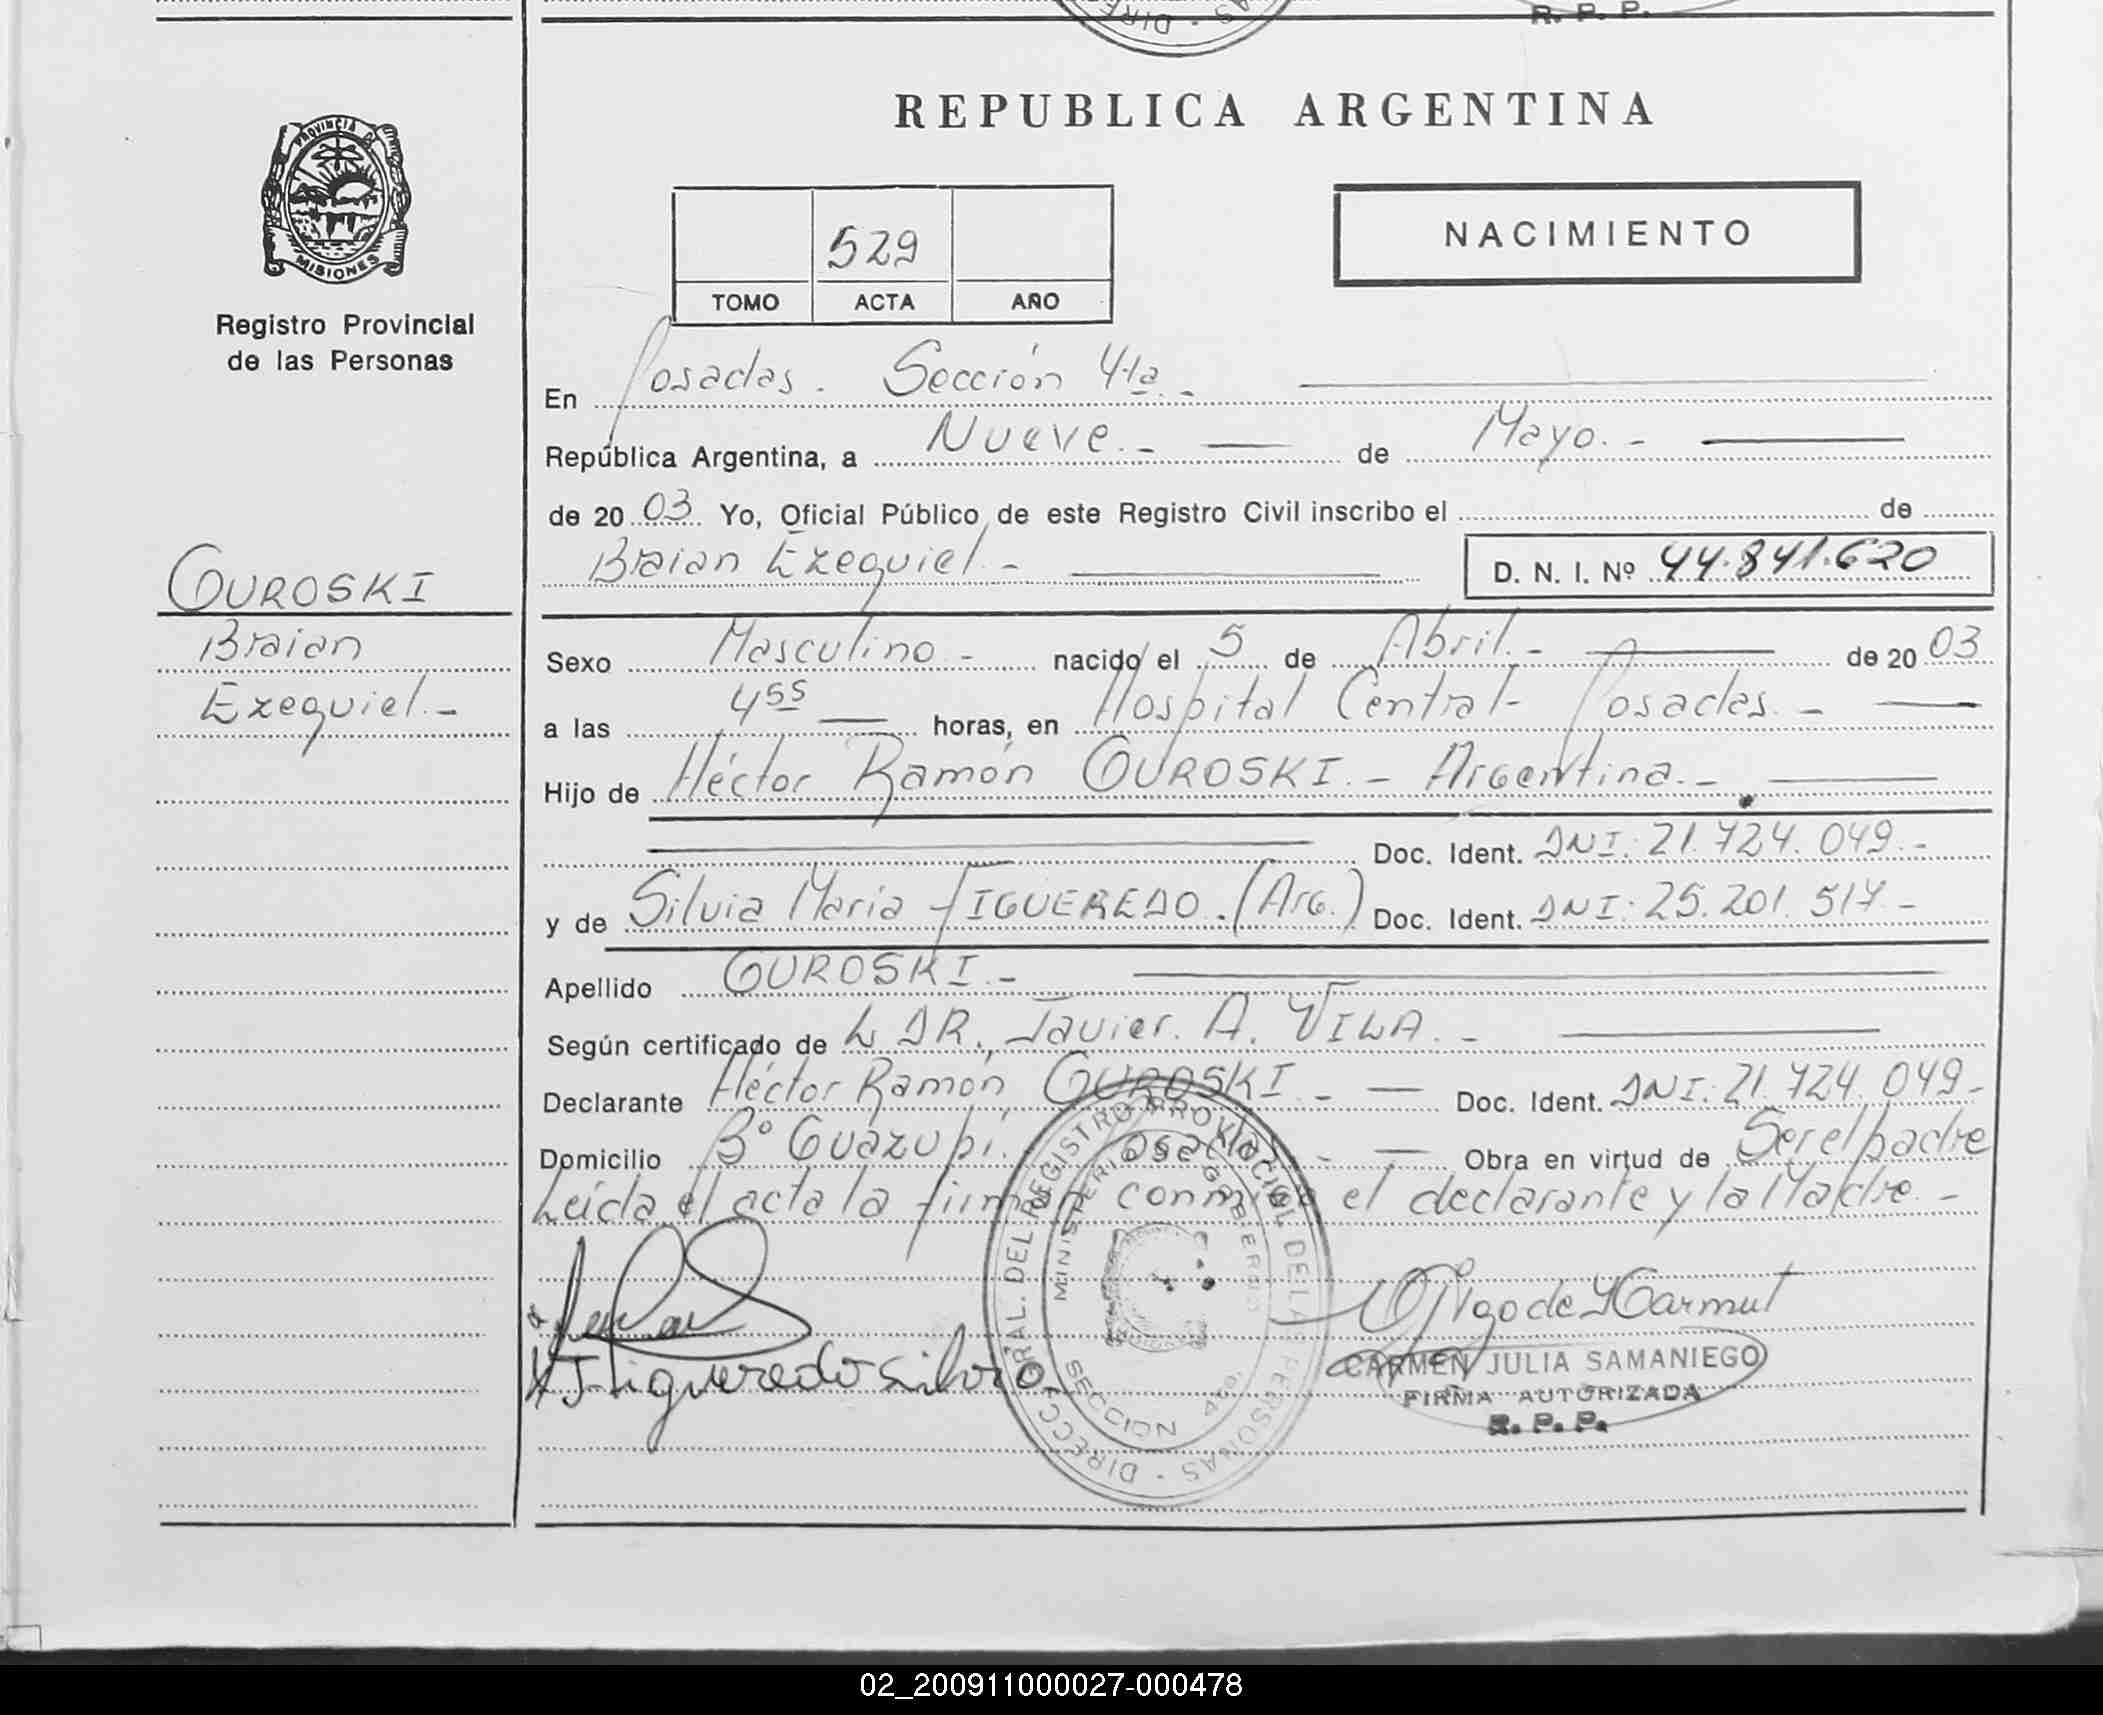 R. P. P.
REPUBLICA ARGENTINA
PROVINCIA DE
MISIONES
Registro Provincial
de las Personas
529
TOMO ACTA AÑO
NACIMIENTO
En Posadas. Sección 4ta.-
República Argentina, a Nueve.- de Mayo.-
de 2003 Yo, Oficial Público de este Registro Civil inscribo el de
Braian Ezequiel.- D. N. I. Nº 44.841.620
GUROSKI
Braian
Ezequiel.-
Sexo Masculino.- nacido el 5 de Abril.- de 2003
a las 4 55 horas, en Hospital Central- Posadas.-
Hijo de Héctor Ramón GUROSKI.- Argentina.-
Doc. Ident. DNI: 21.724.049.-
y de Silvia María FIGUEREDO. (Arg.) Doc. Ident. DNI: 25.201.517-
Apellido GUROSKI.-
Según certificado de L DR. Javier. A. VILA.-
Declarante Héctor Ramón GUROSKI.- Doc. Ident. DNI: 21.724.049-
Domicilio Bº Guazupí. Posadas.- Obra en virtud de Ser el padre
Leída el acta la firman conmigo el declarante y la Madre.-
DIRECC. GRAL. DEL REGISTRO PROVINCIAL DE LAS PERSONAS
MINISTERIO DE GOBIERNO
SECCION 4ta.
Figueredo Silvia
CARMEN JULIA SAMANIEGO
FIRMA AUTORIZADA
R. P. P.
02_200911000027-000478